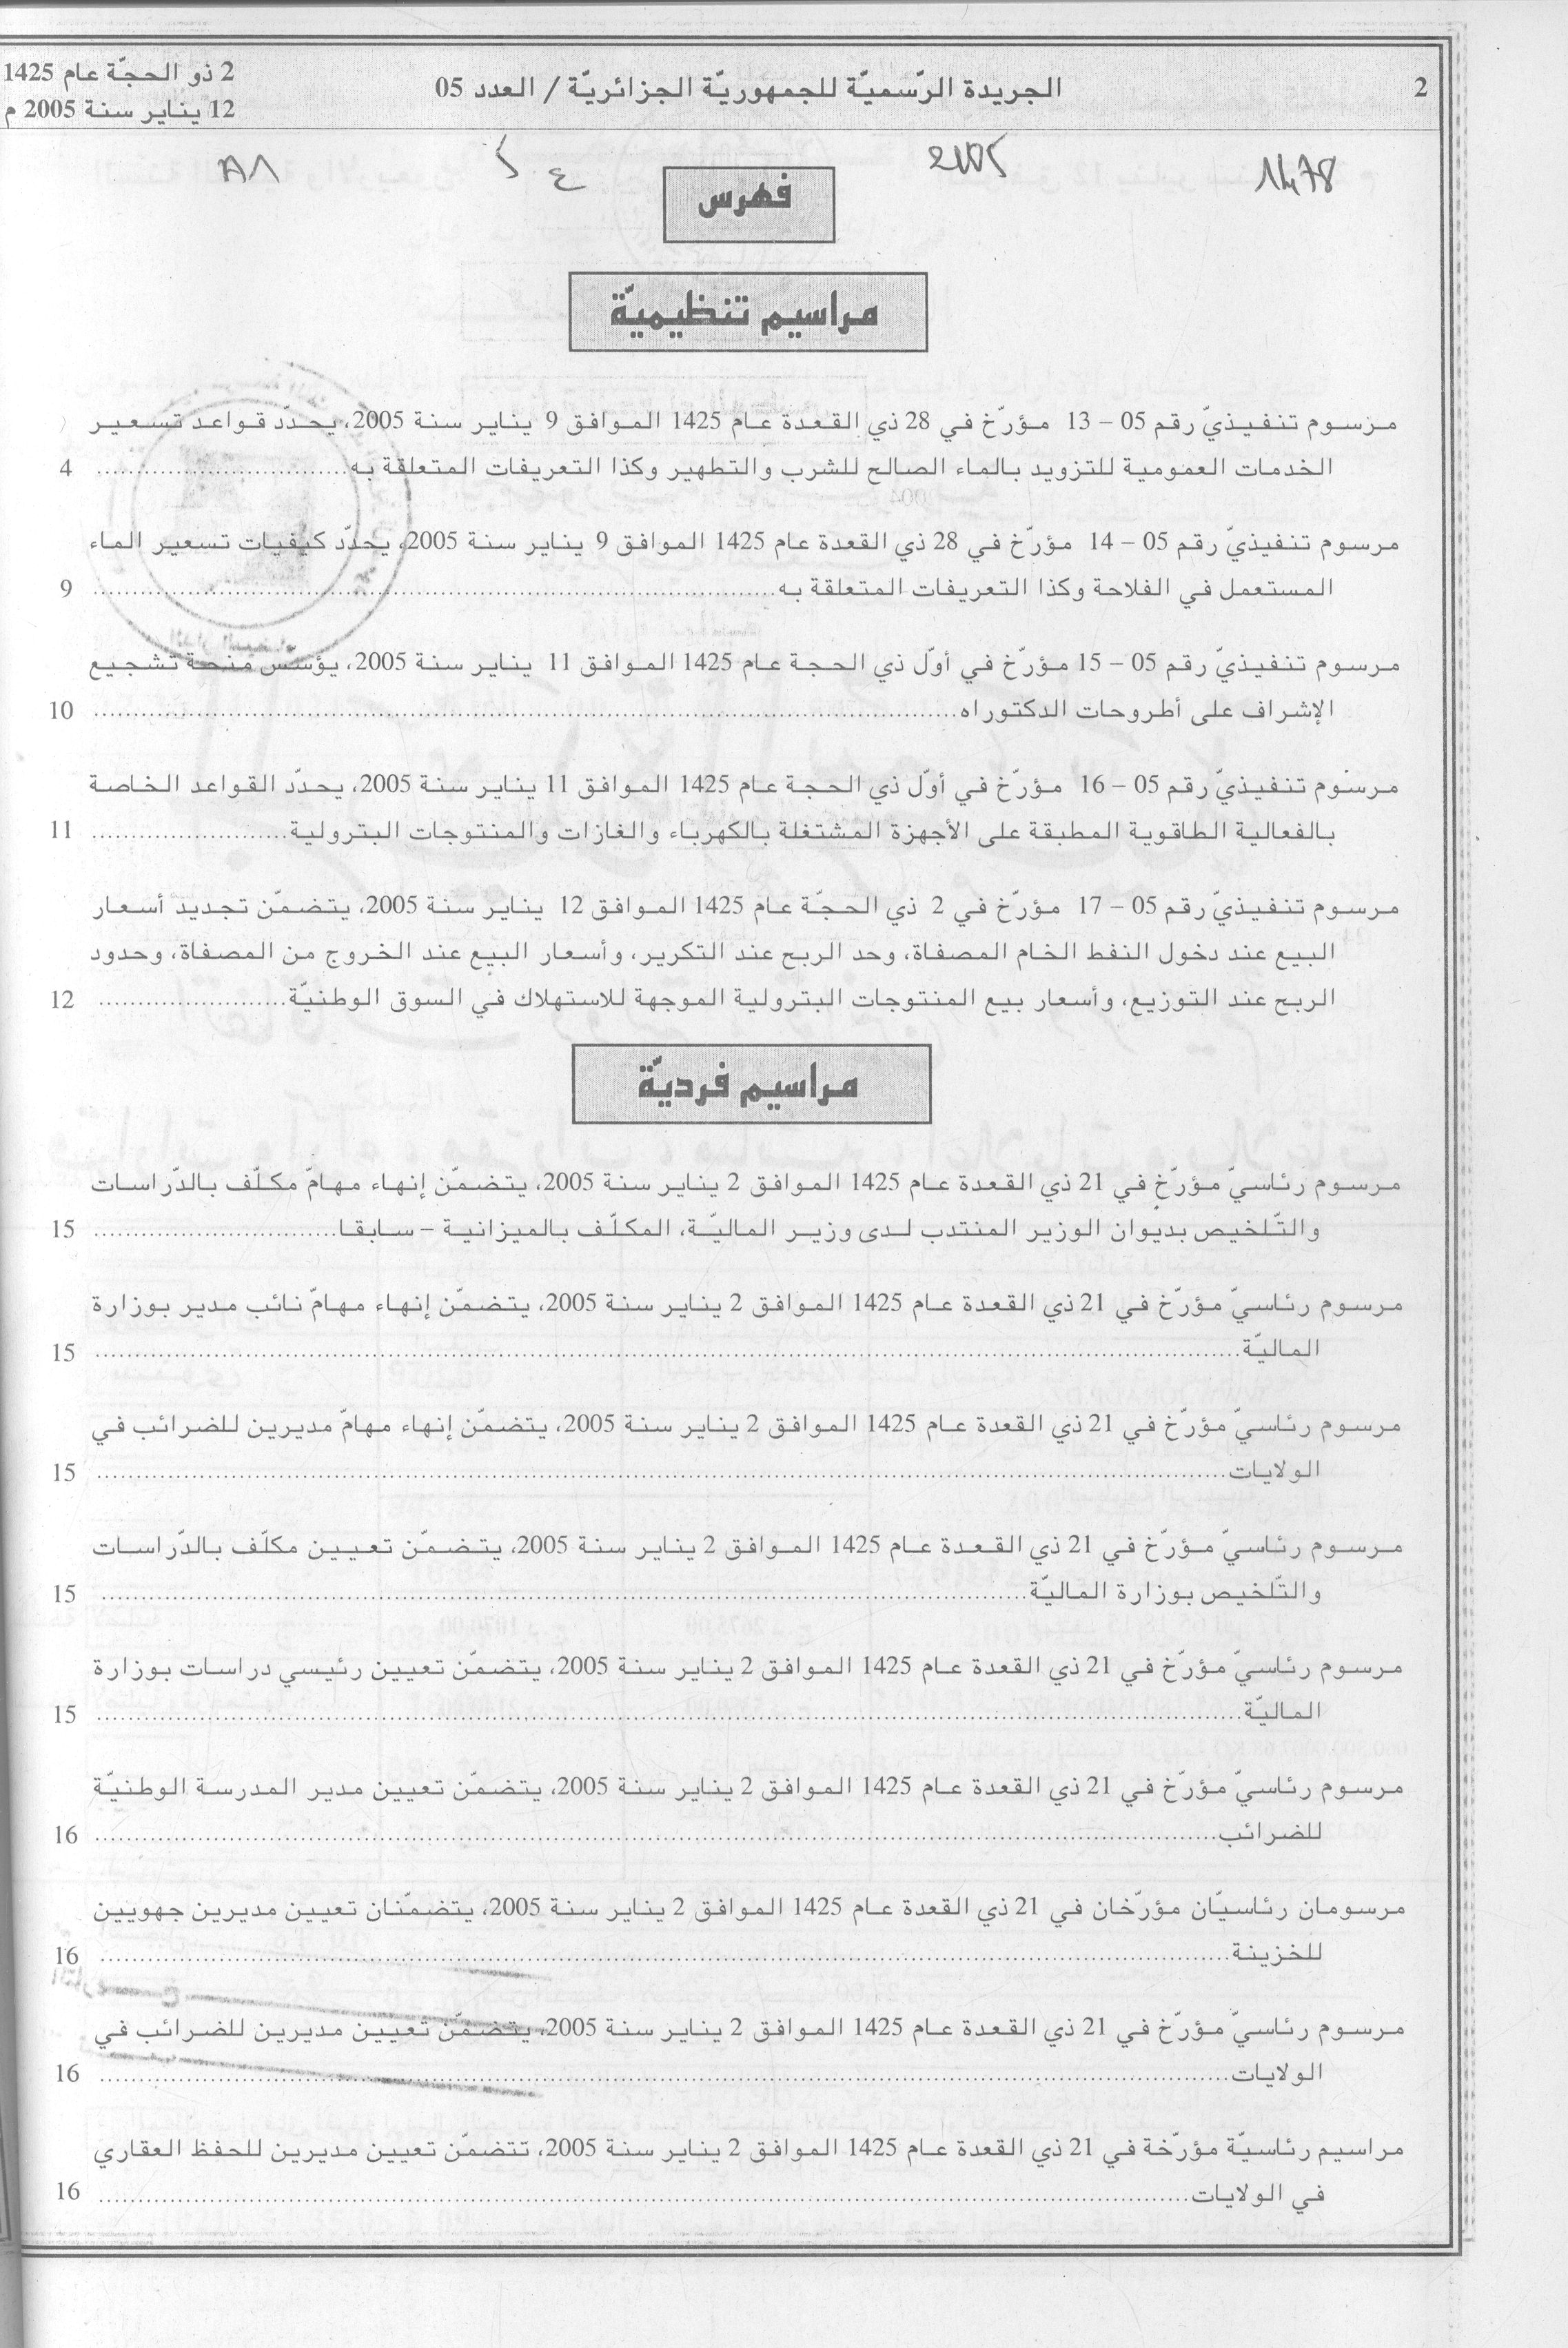 2
الجريدة الرّسميّة للجمهوريّة الجزائريّة / العدد 05
2 ذو الحجّة عام 1425
12 يناير سنة 2005 م
1478
2005
فهرس
مراسيم تنظيميّة
مرسوم تنفيذيّ رقم 05 – 13 مؤرّخ في 28 ذي القعدة عام 1425 الموافق 9 يناير سنة 2005، يحدّد قواعد تسعير
الخدمات العمومية للتزويد بالماء الصالح للشرب والتطهير وكذا التعريفات المتعلقة به........................ 4
مرسوم تنفيذيّ رقم 05 – 14 مؤرّخ في 28 ذي القعدة عام 1425 الموافق 9 يناير سنة 2005، يحدّد كيفيات تسعير الماء
المستعمل في الفلاحة وكذا التعريفات المتعلقة به........................ 9
مرسوم تنفيذيّ رقم 05 – 15 مؤرّخ في أوّل ذي الحجة عام 1425 الموافق 11 يناير سنة 2005، يؤسّس منحة تشجيع
الإشراف على أطروحات الدكتوراه........................ 10
مرسوم تنفيذيّ رقم 05 – 16 مؤرّخ في أوّل ذي الحجة عام 1425 الموافق 11 يناير سنة 2005، يحدّد القواعد الخاصة
بالفعالية الطاقوية المطبقة على الأجهزة المشتغلة بالكهرباء والغازات والمنتوجات البترولية........................ 11
مرسوم تنفيذيّ رقم 05 – 17 مؤرّخ في 2 ذي الحجّة عام 1425 الموافق 12 يناير سنة 2005، يتضمّن تجديد أسعار
البيع عند دخول النفط الخام المصفاة، وحد الربح عند التكرير، وأسعار البيع عند الخروج من المصفاة، وحدود
الربح عند التوزيع، وأسعار بيع المنتوجات البترولية الموجهة للاستهلاك في السوق الوطنيّة........................ 12
مراسيم فرديّة
مرسوم رئاسيّ مؤرّخ في 21 ذي القعدة عام 1425 الموافق 2 يناير سنة 2005، يتضمّن إنهاء مهامّ مكلّف بالدّراسات
والتّلخيص بديوان الوزير المنتدب لدى وزير الماليّة، المكلّف بالميزانية – سابقا........................ 15
مرسوم رئاسيّ مؤرّخ في 21 ذي القعدة عام 1425 الموافق 2 يناير سنة 2005، يتضمّن إنهاء مهامّ نائب مدير بوزارة
الماليّة........................ 15
مرسوم رئاسيّ مؤرّخ في 21 ذي القعدة عام 1425 الموافق 2 يناير سنة 2005، يتضمّن إنهاء مهامّ مديرين للضرائب في
الولايات........................ 15
مرسوم رئاسيّ مؤرّخ في 21 ذي القعدة عام 1425 الموافق 2 يناير سنة 2005، يتضمّن تعيين مكلّف بالدّراسات
والتّلخيص بوزارة الماليّة........................ 15
مرسوم رئاسيّ مؤرّخ في 21 ذي القعدة عام 1425 الموافق 2 يناير سنة 2005، يتضمّن تعيين رئيسي دراسات بوزارة
الماليّة........................ 15
مرسوم رئاسيّ مؤرّخ في 21 ذي القعدة عام 1425 الموافق 2 يناير سنة 2005، يتضمّن تعيين مدير المدرسة الوطنيّة
للضرائب........................ 16
مرسومان رئاسيّان مؤرّخان في 21 ذي القعدة عام 1425 الموافق 2 يناير سنة 2005، يتضمّنان تعيين مديرين جهويين
للخزينة........................ 16
مرسوم رئاسيّ مؤرّخ في 21 ذي القعدة عام 1425 الموافق 2 يناير سنة 2005، يتضمّن تعيين مديرين للضرائب في
الولايات........................ 16
مراسيم رئاسيّة مؤرّخة في 21 ذي القعدة عام 1425 الموافق 2 يناير سنة 2005، تتضمّن تعيين مديرين للحفظ العقاري
في الولايات........................ 16